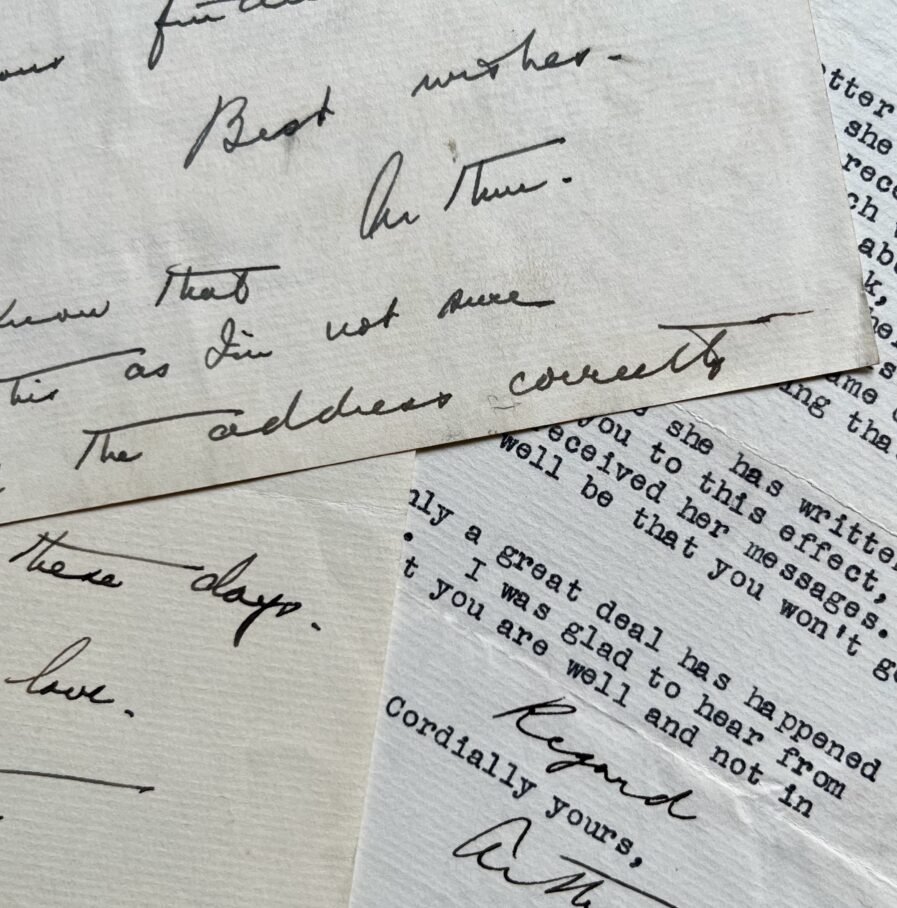 Best wishes.
Arthur.
know that
this as I'm not sure
the address correctly
these days.
love.
etter
she
rece
ch
abo
k,
hel
s
ame
ing tha
she has written
you to this effect,
received her messages.
well be that you won't ge
nly a great deal has happened
. I was glad to hear from
t you are well and not in
Regard
Cordially yours,
Arth